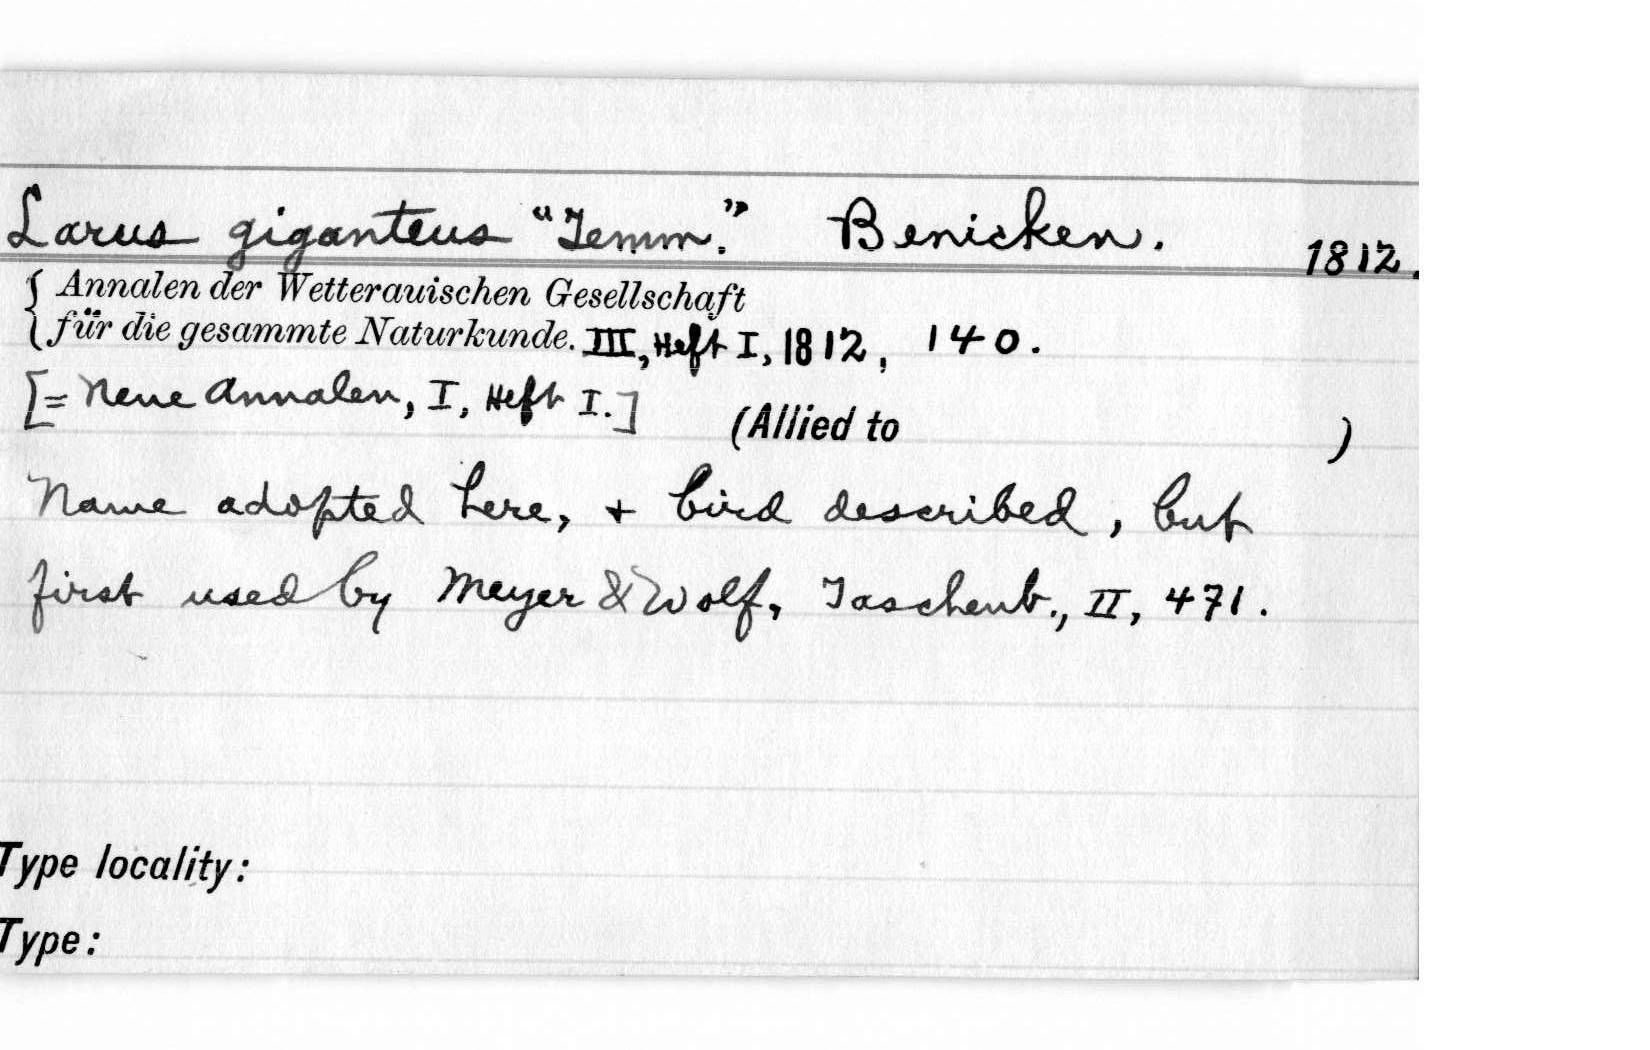 Larus giganteus "Temm." Benicken. 1812.
{ Annalen der Wetterauischen Gesellschaft
für die gesammte Naturkunde. III, Heft I, 1812, 140.
[= Neue Annalen, I, Heft I.] (Allied to )
Name adopted here, + bird described, but
first used by Meyer & Wolf, Taschenb., II, 471.
Type locality:
Type: